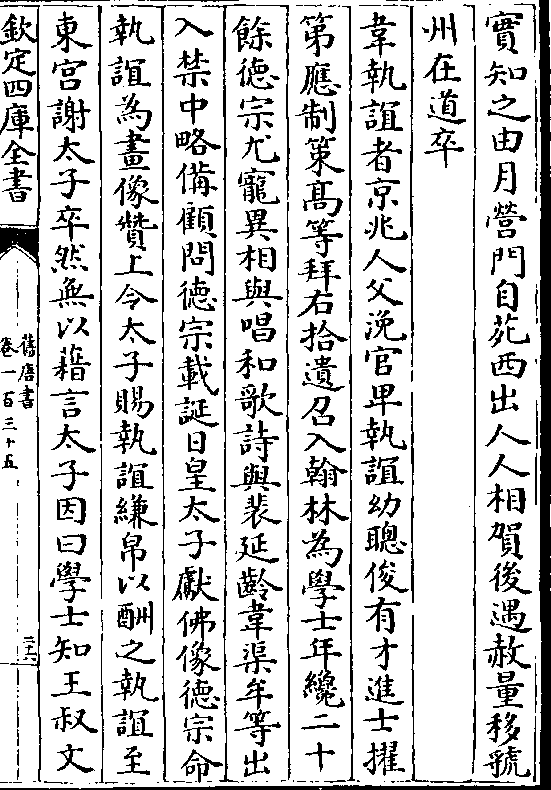 實知之由月營門自苑西出人人相賀後遇赦量移虢
州在道卒
韋執誼者京兆人父浼官卑執誼幼聰俊有才進士擢
第應制策髙等拜右拾遺召入翰林為學士年纔二十
餘德宗尤寵異相與唱和歌詩與裴延齡韋渠牟等出
入禁中略備顧問德宗載誕日皇太子獻佛像德宗命
執誼為畫像贊上令太子賜執誼縑帛以酬之執誼至
東宮謝太子卒然無以藉言太子因曰學士知王叔文
欽定四庫全書
舊唐書
卷一百三十五